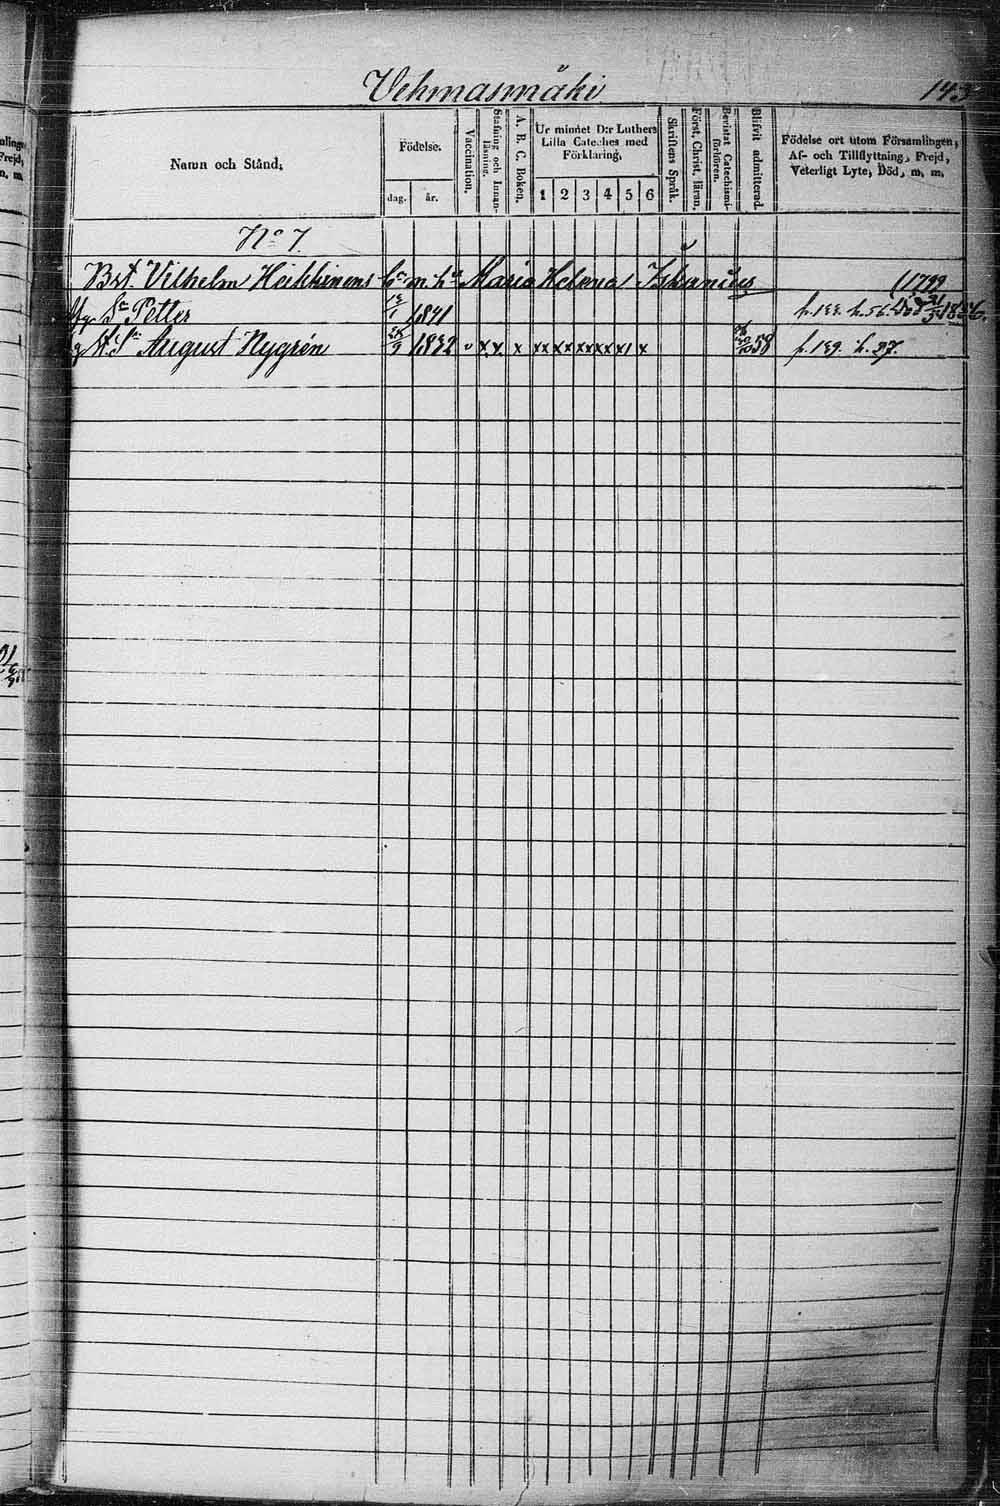 Vehmasmäki 143
Namn och Stånd,
Födelse.
dag. år.
Vaccination.
Stafning och Innan-läsning.
A. B. C. Boken.
Ur minnet D:r Luthers
Lilla Cateches med
Förklaring,
1 2 3 4 5 6
Skriftens Språk.
Först. Christ. läran.
Bevistat Catechismi-förhören.
Blifvit admitterad.
Födelse ort utom Församlingen,
Af- och Tillflyttning, Frejd,
Veterligt Lyte, Död, m. m.
No 7
Bst. Vilhelm Heikkinens m. Maria Helena (1799
Sn Petter 1841 p. 133. h. 56. Död
August Nygrén 1832 x x x xx xx xx xx x x 58 p. 139. h. 27.